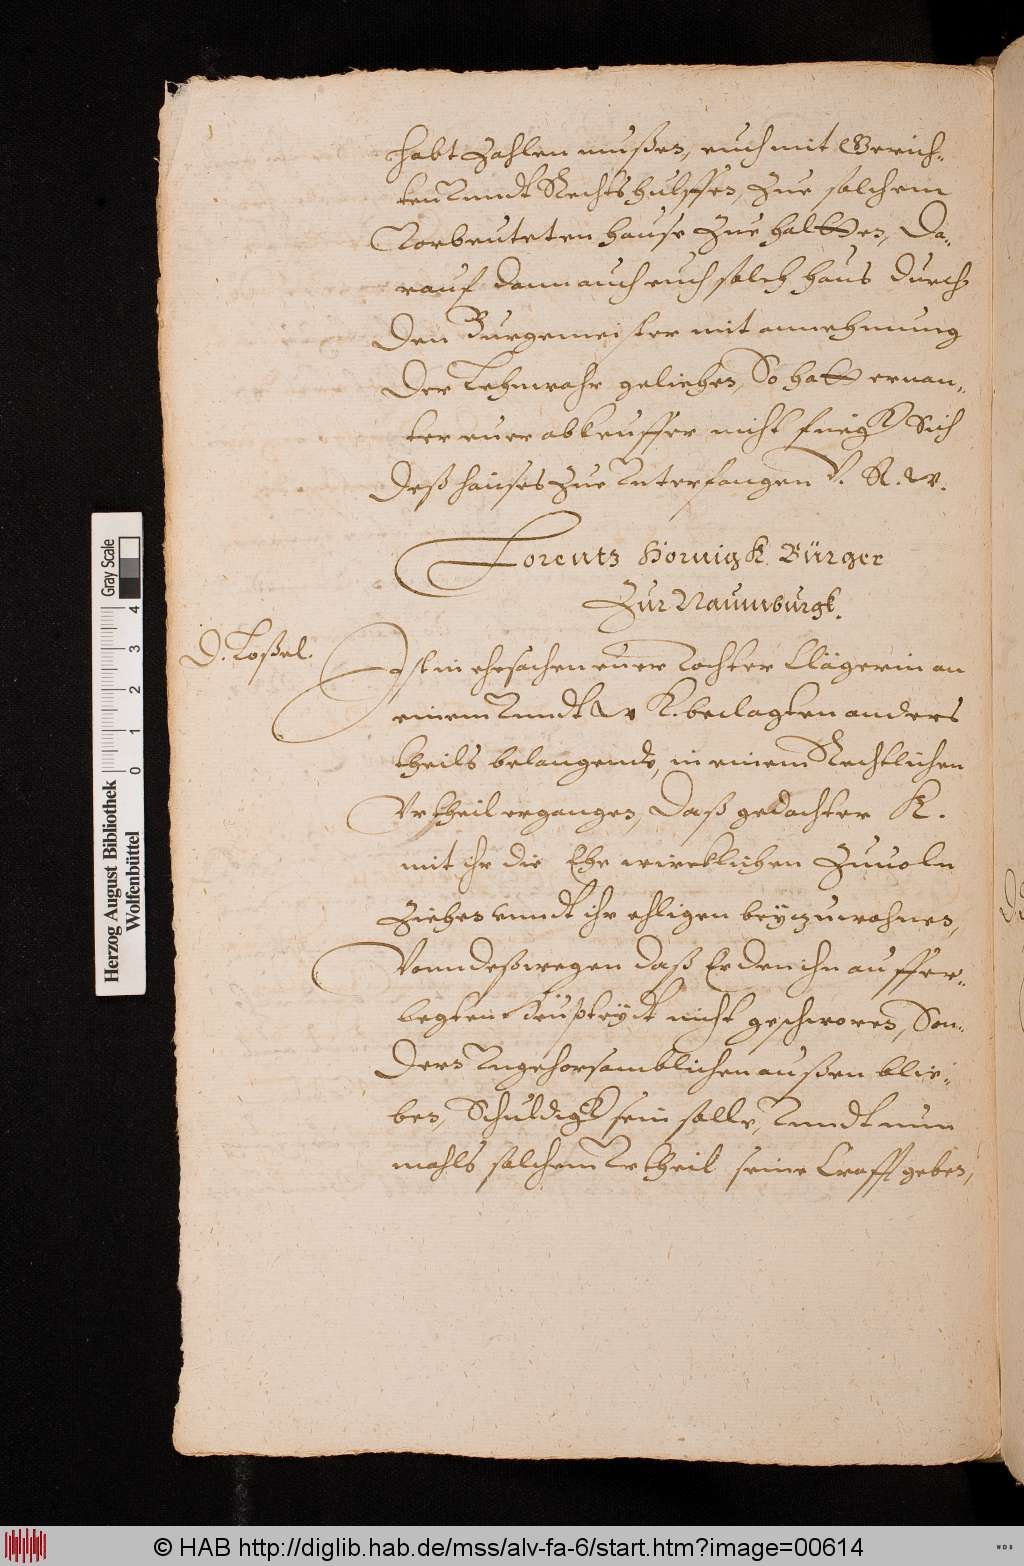 habt Zahlen mußen, euch mit Gerich-
ten Unndt Rechts hulffen, Zue solchem
Vorbeuteten hause Zue haltten, Da-
rauf dann auch euch solch haus durch
den Burgemeister mit annehmung
der Lehnwahr geliehen, So hatt ernan-
ter euer abkeuffer nicht fueg Sich
deß hauses Zue Unterfangen V. R. w.
Lorentz Hornigk Bürger
Zur Naumburgk.
D. Loßel.
Ist in ehesachen euer Tochter Clägerin an
einem Unndt N K. beclagten anders
theils belangende, in einem Rechtlichen
Urtheil ergangen, Daß gedachter K.
mit ihr die Ehe wircklichen Zuuoln
Ziehen unndt ihr ehligen beyzuwohnen,
Vonn deßwegen daß Er den ihn aufffer-
legten nicht geschworen, Son-
dern Ungehorsamblichen außen blie-
ben, Schuldigk sein solle, Unndt nun
mahls solchem Urtheil seine Crafft geben,
Herzog August Bibliothek
Wolfenbüttel
Gray Scale
0 1 2 3 4
© HAB http://diglib.hab.de/mss/alv-fa-6/start.htm?image=00614